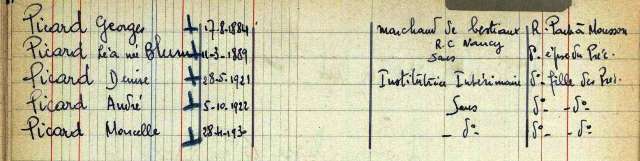 Picard Georges 17.8.1884 marchand de bestiaux R. Pont à Mousson
R.C Nancy
Picard Léa née Blum 11-3-1889 Sans do épse du Préc.
Picard Denise 28-5-1921 Institutrice Intérimaire do fille des Préc.
Picard André 5-10-1922 Sans do - do
Picard Marcelle 28-11-930 - do - do - do